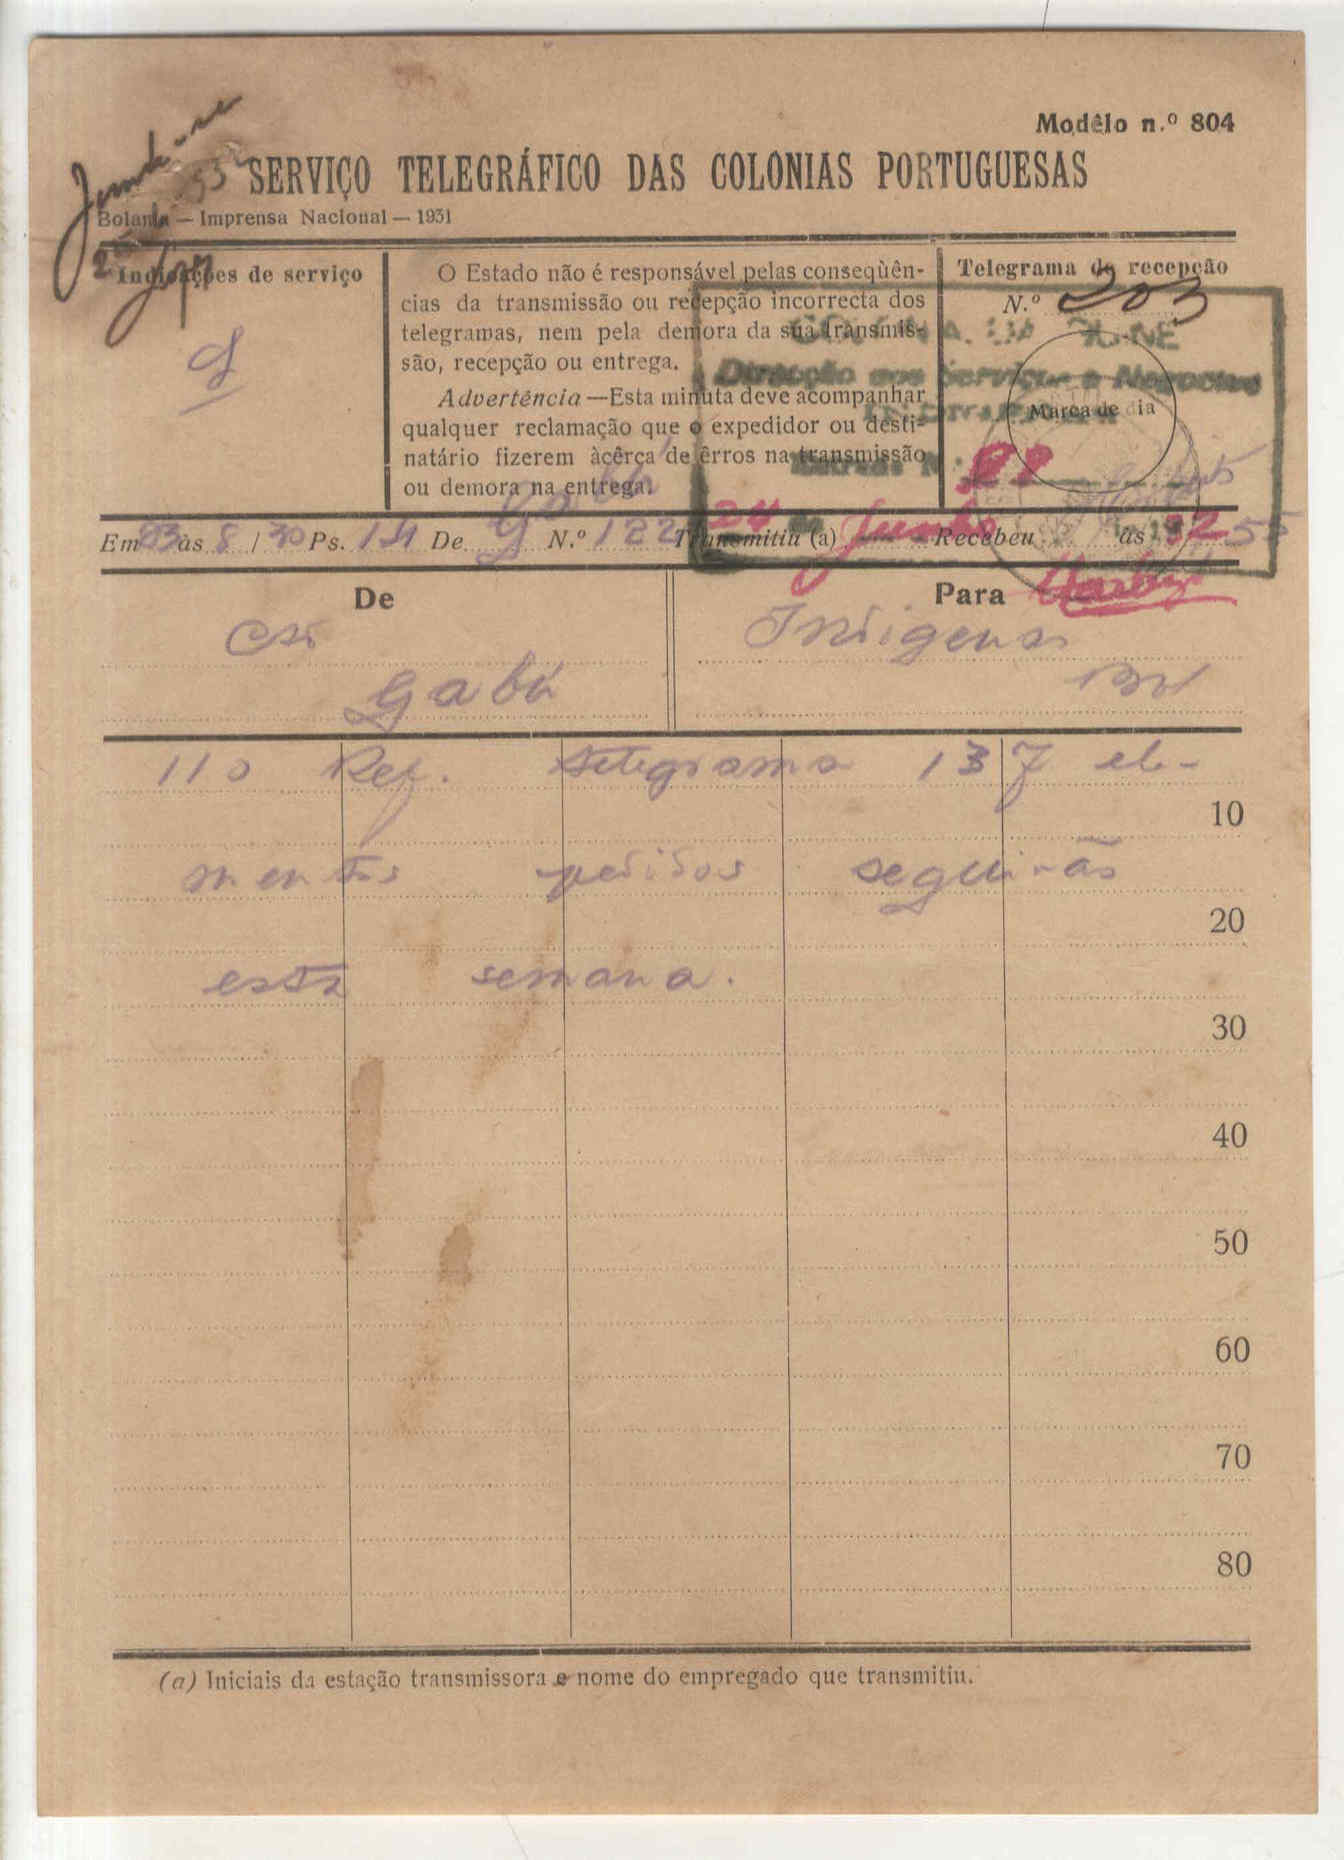 Modêlo n.º 804
SERVIÇO TELEGRÁFICO DAS COLONIAS PORTUGUESAS
Bolama — Imprensa Nacional — 1931
Indicações de serviço
O Estado não é responsável pelas conseqùên-
cias da transmissão ou recepção incorrecta dos
telegramas, nem pela demora da sua transmis-
são, recepção ou entrega.
Advertência — Esta minuta deve acompanhar
qualquer reclamação que o expedidor ou desti-
natário fizerem àcêrca de êrros na transmissão
ou demora na entrega.
Telegrama de recepção
N.º 203
Marca de dia
COLONIA DA GUINÉ
Direcção dos Serviços e Negocios
INDIGENAS
Entrada N.º
24 de Junho 32
Gabú
Em 23 às 8 / 30 Ps. 14 De N.º 122 Transmitiu (a) Recebeu às
De
Para
Gabú
Indigenas
110 Ref. telegrama 137 ele-
10
mentos pedidos seguirão
20
esta semana.
30
40
50
60
70
80
(a) Iniciais da estação transmissora e nome do empregado que transmitiu.